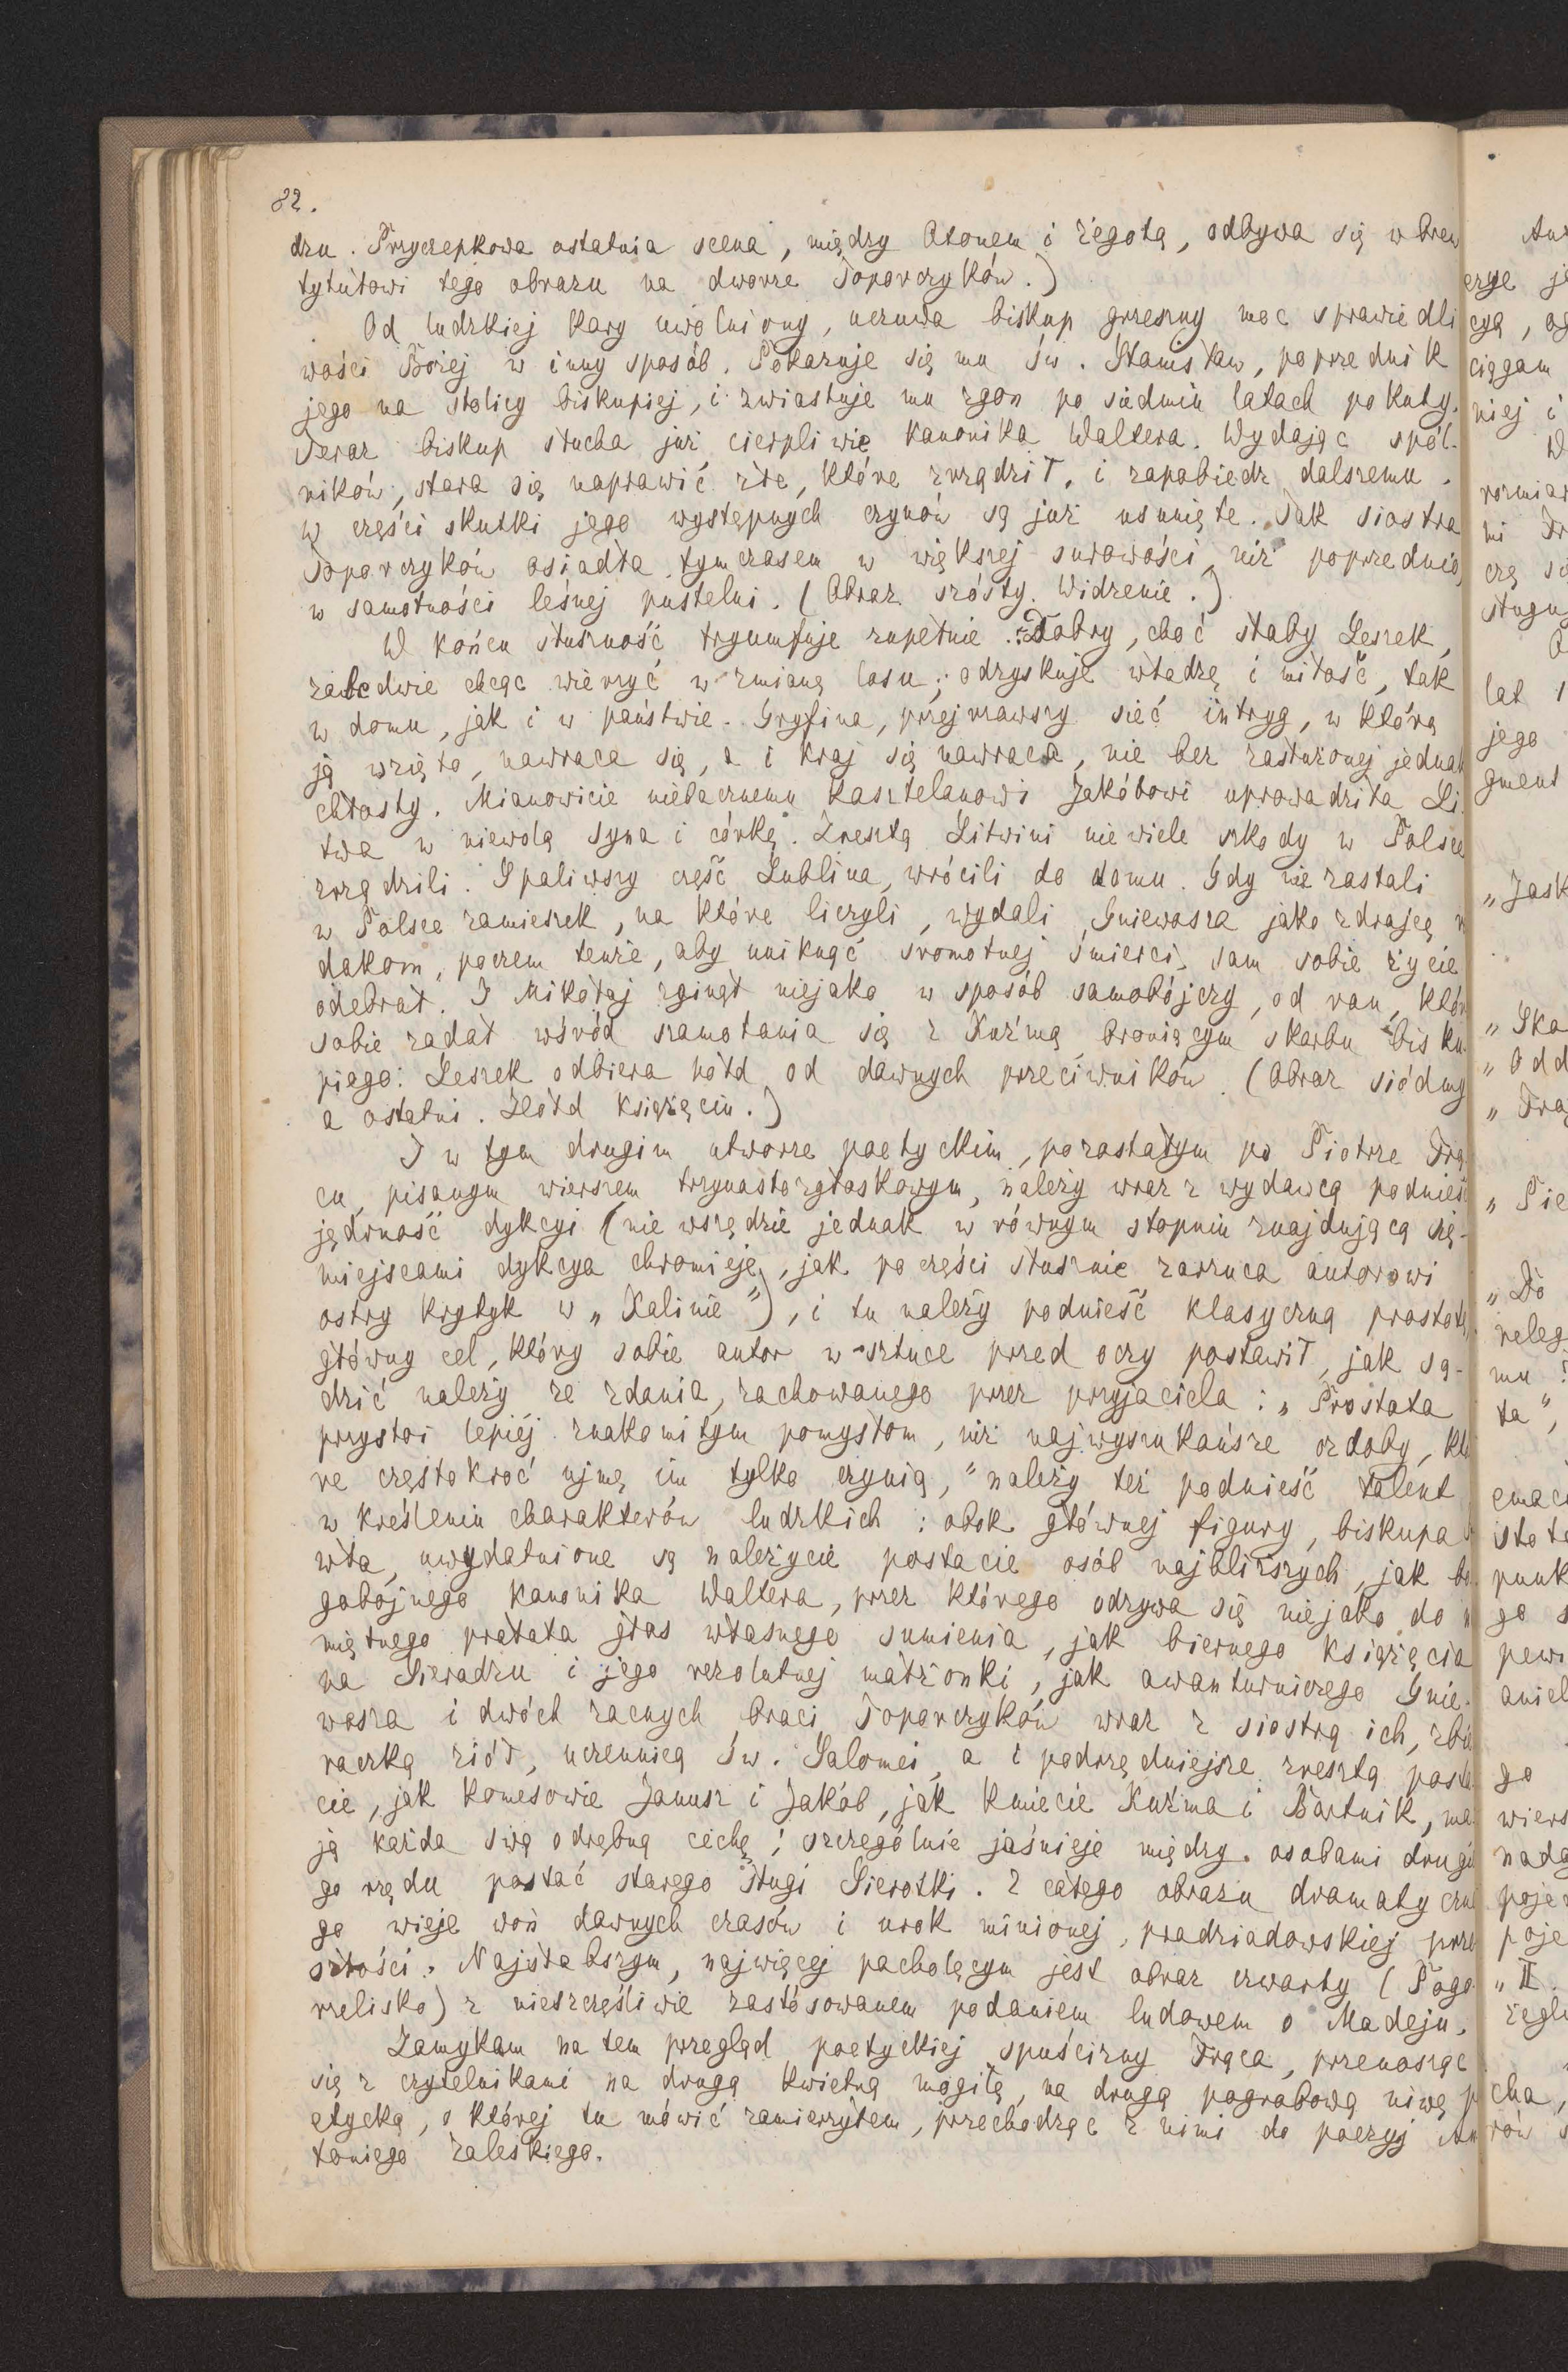 82.
dzu. Przyczepkowa ostatnia scena, między Otonem i Żegotą, odbywa się wbrew
tytułowi tego obrazu na dworze Toporczyków.)
Od ludzkiej kary uwolniony, uczuwa biskup grzeszny moc sprawiedli
wości Bożej w inny sposób. Pokazuje się mu św. Stanisław, poprzednik
jego na stolicy biskupiej, i zwiastuje mu zgon po siedmiu latach pokuty.
Teraz biskup słucha już cierpliwie kanonika Waltera. Wydając spól-
ników, stara się naprawić złe, które zrządził, i zapobiedz dalszemu.
W części skutki jego występnych czynów są już usunięte. Tak siostra
Toporczyków osiadła tymczasem w większej surowości niż poprzednio,
w samotności leśnej pustelni. (Obraz szósty. Widzenie.)
W końcu słuszność tryumfuje zupełnie. Dobry, choć słaby Leszek,
zaledwie chcąc wierzyć w zmianę losu, odzyskuje władzę i miłość, tak
w domu, jak i w państwie. Gryfina, przejrzawszy sieć intryg, w którą
ją wzięto, nawraca się, a i kraj się nawraca, nie bez zasłużonej jednak
chłosty. Mianowicie niebacznemu kasztelanowi Jakóbowi uprowadziła Li
twa w niewolę syna i córkę. Zresztą Litwini niewiele szkody w Polsce
zrządzili. Spaliwszy część Lublina, wrócili do domu. Gdy nie zastali
w Polsce zamieszek, na które liczyli, wydali Gniewosza jako zdrajcę
dakom, poczem tenże, aby uniknąć sromotnej śmierci, sam sobie życie
odebrał. I Mikołaj zginął niejako w sposób samobójczy, od ran, któr
sobie zadał wśród szamotania się z Kuźmą broniącym skarbu bisku
piego. Leszek odbiera hołd od dawnych przeciwników. (Obraz siódmy
a ostatni. Hołd księżęciu.)
I w tym drugim utworze poetyckim, pozostałym po Piotrze Frą
cu, pisanym wierszem trzynastozgłoskowym, należy wraz z wydawcą podnieść
jędrność dykcyi (nie wszędzie jednak w równym stopniu znajdującą się-
miejscami dykcya chromieje, jak po części słusznie zarzuca autorowi
ostry krytyk w „Kalinie"), i tu należy podnieść klasyczną prostotę,
główny cel, który sobie autor w sztuce przed oczy postawił, jak są-
dzić należy ze zdania, zachowanego przez przyjaciela: „Prostota
przystoi lepiéj znakomitym pomysłom, niż najwyszukańsze ozdoby, któ
re częstokroć ujmę im tylko czynią," należy też podnieść talent
w kreśleniu charakterów ludzkich: obok głównej figury, biskupa
wła, uwydatnione są należycie postacie osób najbliższych, jak bo
gobojnego kanonika Waltera, przez którego odzywa się niejako do
miętnego prałata głos własnego sumienia, jak biernego księżęcia
na Sieradzu i jego rezolutnej małżonki, jak awanturniczego Gnie-
wosza i dwóch zacnych braci Toporczyków wraz z siostrą ich, zbie
raczką ziół, uczennicą św. Salomei, a i podrzędniejsze zresztą posta
cie, jak komesowie Janusz i Jakób, jak kmiecie Kuźma i Bartnik, ma
ją każda swą odrębną cechę; szczególnie jaśnieje między osobami drugie
go rzędu postać starego sługi Sierotki. Z całego obrazu dramatyczne
go wieje woń dawnych czasów i urok minionej, pradziadowskiej prze
szłości. Najsłabszym, najwięcej pacholęcym jest obraz czwarty (Pogo
rzelisko) z nieszczęśliwie zastósowanem podaniem ludowem o Madeju.
Zamykam na tem przegląd poetyckiej spuścizny Frąca, przenosząc
się z czytelnikami na drugą kwietną mogiłę, na drugą pogrobową niwę p
etycką, o której tu mówić zamierzyłem, przechodząc z nimi do poezyj An
toniego Zaleskiego.